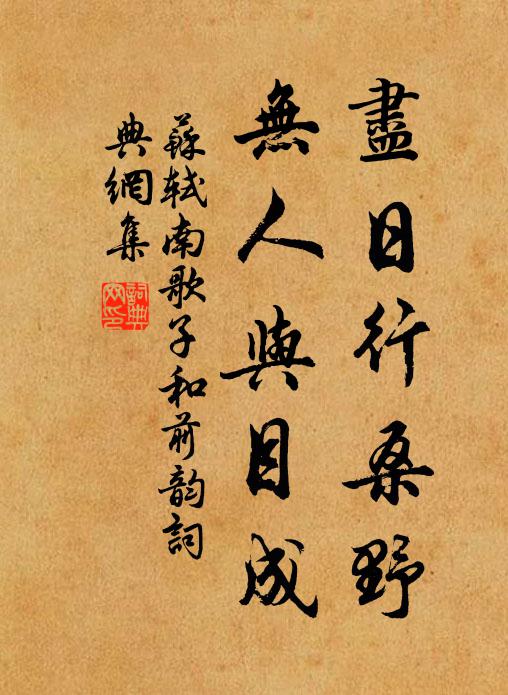 盡日行桑野
無人與目成
蘇軾南歌子和前韵詞
典網集
詞典网印